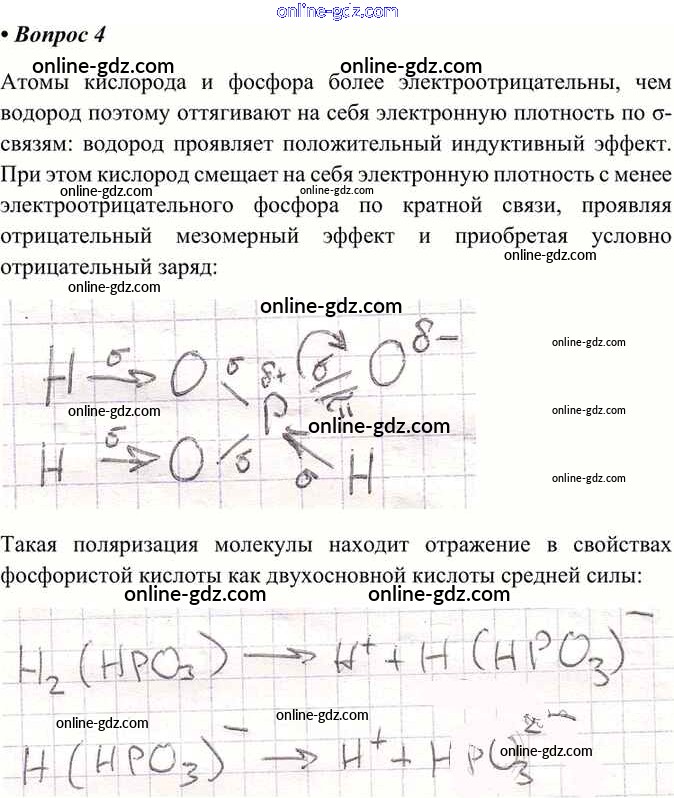 online-gdz.com
• Вопрос 4
online-gdz.com online-gdz.com
Атомы кислорода и фосфора более электроотрицательны, чем
водород поэтому оттягивают на себя электронную плотность по σ-
связям: водород проявляет положительный индуктивный эффект.
При этом кислород смещает на себя электронную плотность с менее
online-gdz.com online-gdz.com
электроотрицательного фосфора по кратной связи, проявляя
отрицательный мезомерный эффект и приобретая условно
online-gdz.com
отрицательный заряд:
online-gdz.com
online-gdz.com
online-gdz.com
H σ O σ δ+ σ O δ−
P π
online-gdz.com online-gdz.com
online-gdz.com
H σ O σ σ H
online-gdz.com
online-gdz.com
Такая поляризация молекулы находит отражение в свойствах
фосфористой кислоты как двухосновной кислоты средней силы:
online-gdz.com online-gdz.com
H₂(HPO₃) → H⁺ + H(HPO₃)⁻
online-gdz.com online-gdz.com
H(HPO₃)⁻ → H⁺ + HPO₃²⁻
online-gdz.com
online-gdz.com